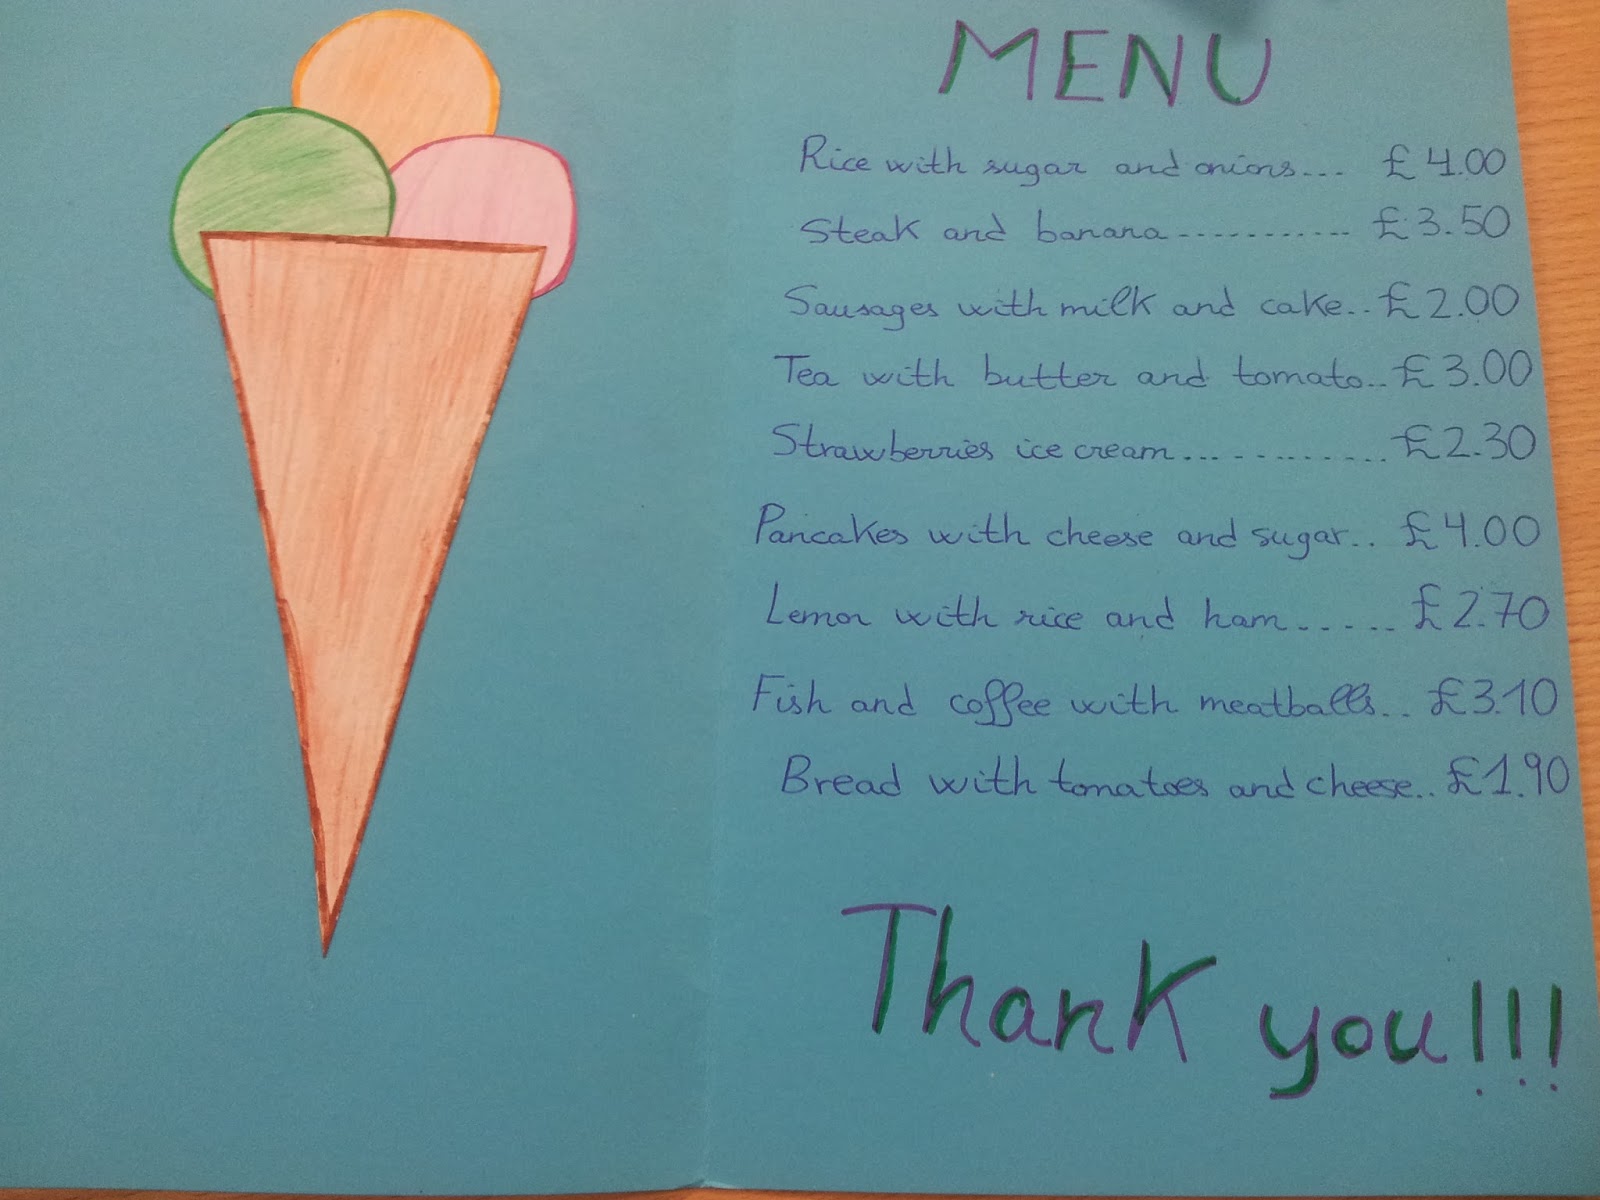 MENU
Rice with sugar and onions... £4.00
Steak and banana........... £3.50
Sausages with milk and cake.. £2.00
Tea with butter and tomato.. £3.00
Strawberries ice cream............ £2.30
Pancakes with cheese and sugar.. £4.00
Lemon with rice and ham..... £2.70
Fish and coffee with meatballs.. £3.10
Bread with tomatoes and cheese.. £1.90
Thank you!!!